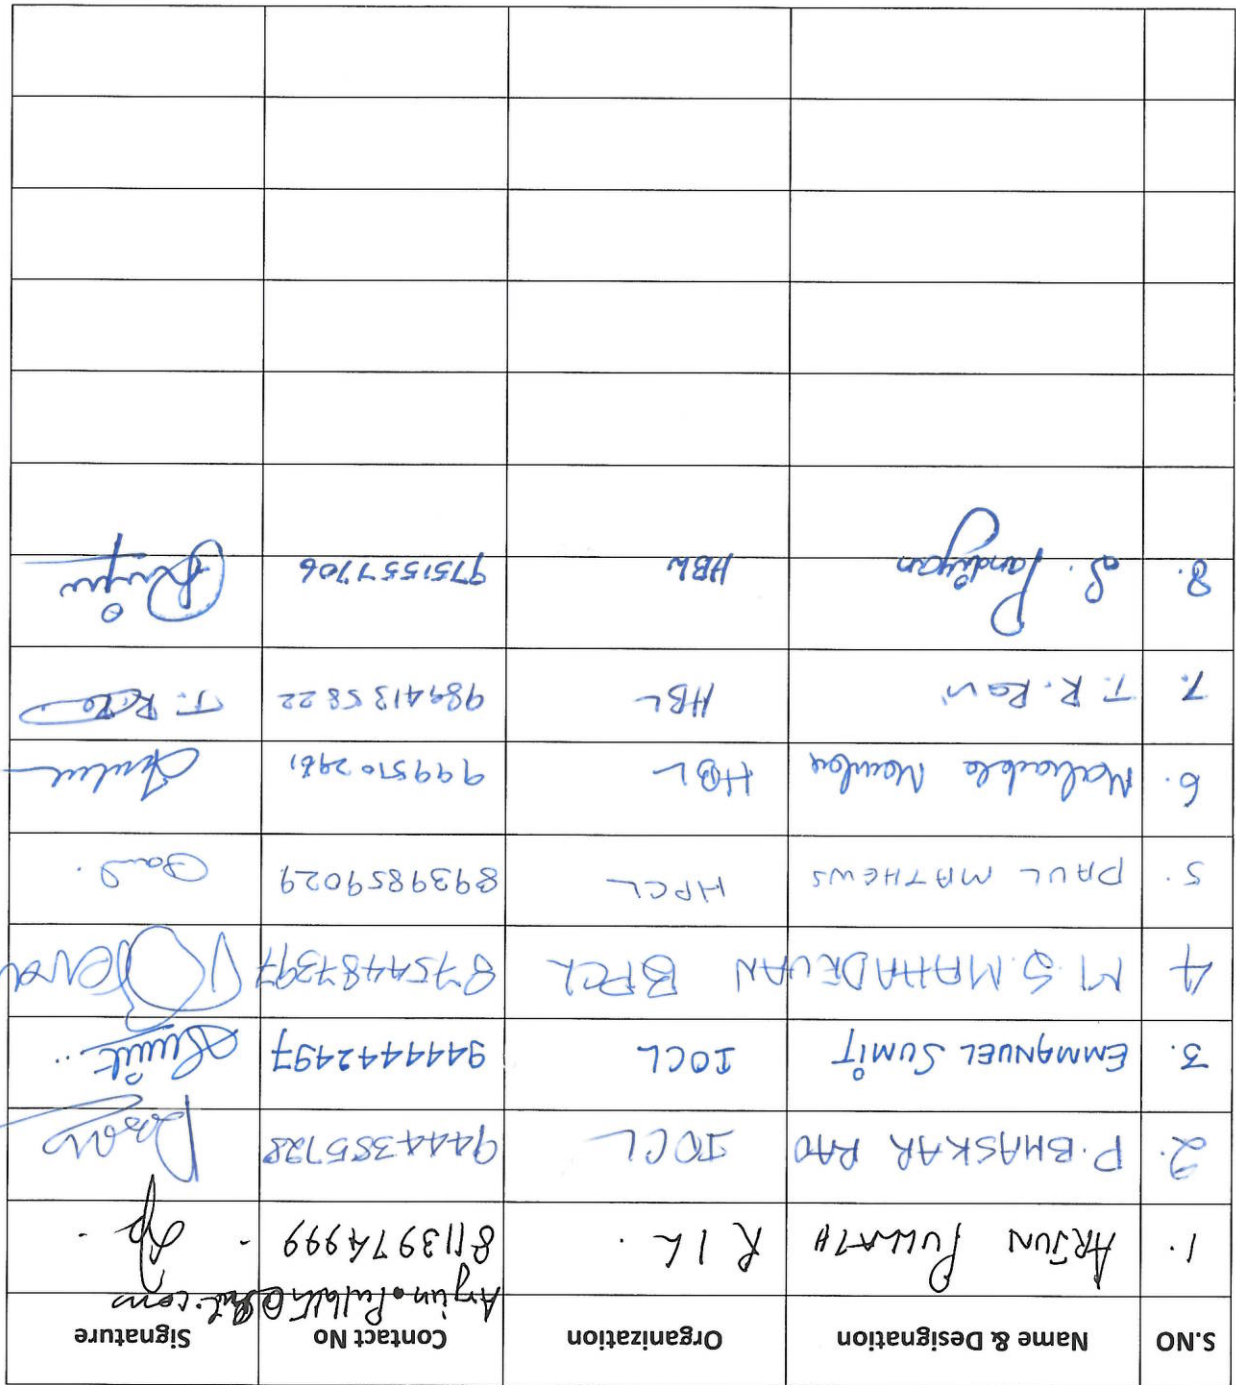 S.NO Name & Designation Organization Contact No Signature
Arjun.Pullath@ril.com
1. ARJUN PULLATH RIL. 8113974999
2. P. BHASKAR RAO IOCL 9444385728
3. EMMANUEL SUMIT IOCL 9444442497 Sumit..
4 M.S. MAHADEVAN BPCL 8754487397
5. PAUL MATHEWS HPCL 8939859029 Paul.
6. HBL 9995102961
7. T.R. Ravi HBL 9894135822
8. S. Pandiyan HBL 9751557706